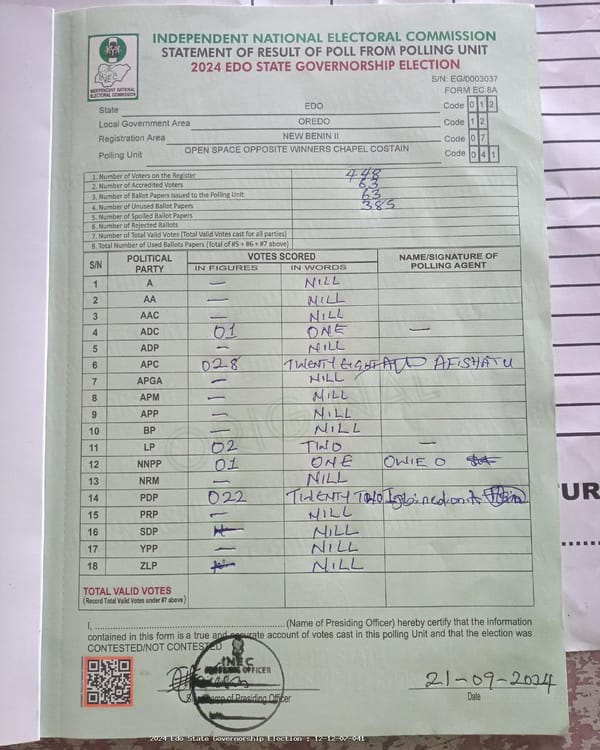 INDEPENDENT NATIONAL ELECTORAL COMMISSION
STATEMENT OF RESULT OF POLL FROM POLLING UNIT
2024 EDO STATE GOVERNORSHIP ELECTION
INEC
INDEPENDENT NATIONAL ELECTORAL COMMISSION
S/N: EG/0003037
FORM EC 8A
State EDO Code 0 1 2
Local Government Area OREDO Code 1 2
Registration Area NEW BENIN II Code 0 7
Polling Unit OPEN SPACE OPPOSITE WINNERS CHAPEL COSTAIN Code 0 4 1
1. Number of Voters on the Register 448
2. Number of Accredited Voters 63
3. Number of Ballot Papers Issued to the Polling Unit 63
4. Number of Unused Ballot Papers 385
5. Number of Spoiled Ballot Papers
6. Number of Rejected Ballots
7. Number of Total Valid Votes (Total Valid Votes cast for all parties)
8. Total Number of Used Ballots Papers (Total of #5 + #6 + #7 above)
S/N POLITICAL PARTY VOTES SCORED NAME/SIGNATURE OF POLLING AGENT
IN FIGURES IN WORDS
1 A — NILL
2 AA — NILL
3 AAC — NILL
4 ADC 01 ONE —
5 ADP — NILL
6 APC 028 TWENTY EIGHT AFISHATU
7 APGA — NILL
8 APM — NILL
9 APP — NILL
10 BP — NILL
11 LP 02 TWO —
12 NNPP 01 ONE OWIE O
13 NRM — NILL
14 PDP 022 TWENTY TWO
15 PRP — NILL
16 SDP NILL
17 YPP — NILL
18 ZLP NILL
TOTAL VALID VOTES
(Record Total Valid Votes under #7 above)
I, ............................................(Name of Presiding Officer) hereby certify that the information
contained in this form is a true and accurate account of votes cast in this polling Unit and that the election was
CONTESTED/NOT CONTESTED
INEC
OFFICER
of Presiding Officer
21-09-2024
Date
UR
2024 Edo State Governorship Election : 12-12-07-041